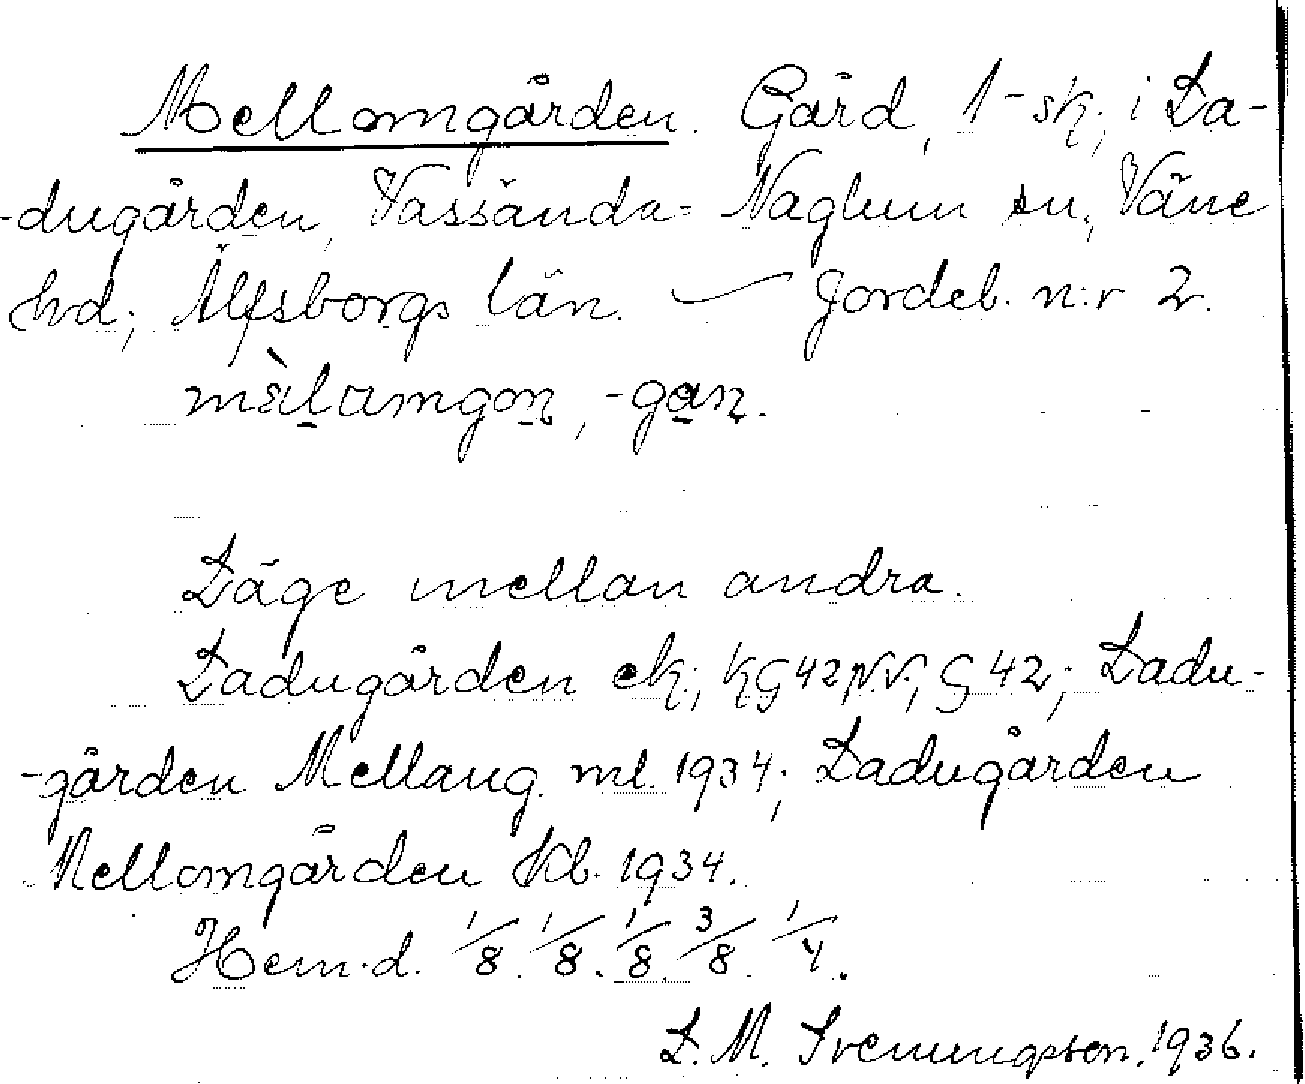 Mellomgården. Gård, 1-sk; i La-
-dugården, Vassända-Naglum sn; Väne
hd; Älfsborgs län. — Jordeb. n:r 2.
mälamgon, -gan.
Läge mellan andra.
Ladugården ek; KG 42 NV; G 42; Ladu-
-gården Mellang. ml. 1934; Ladugården
Mellomgården Kb. 1934.
Hem.d. 1/8. 1/8. 1/8. 3/8. 1/4.
L. M. Svenungsson. 1936.